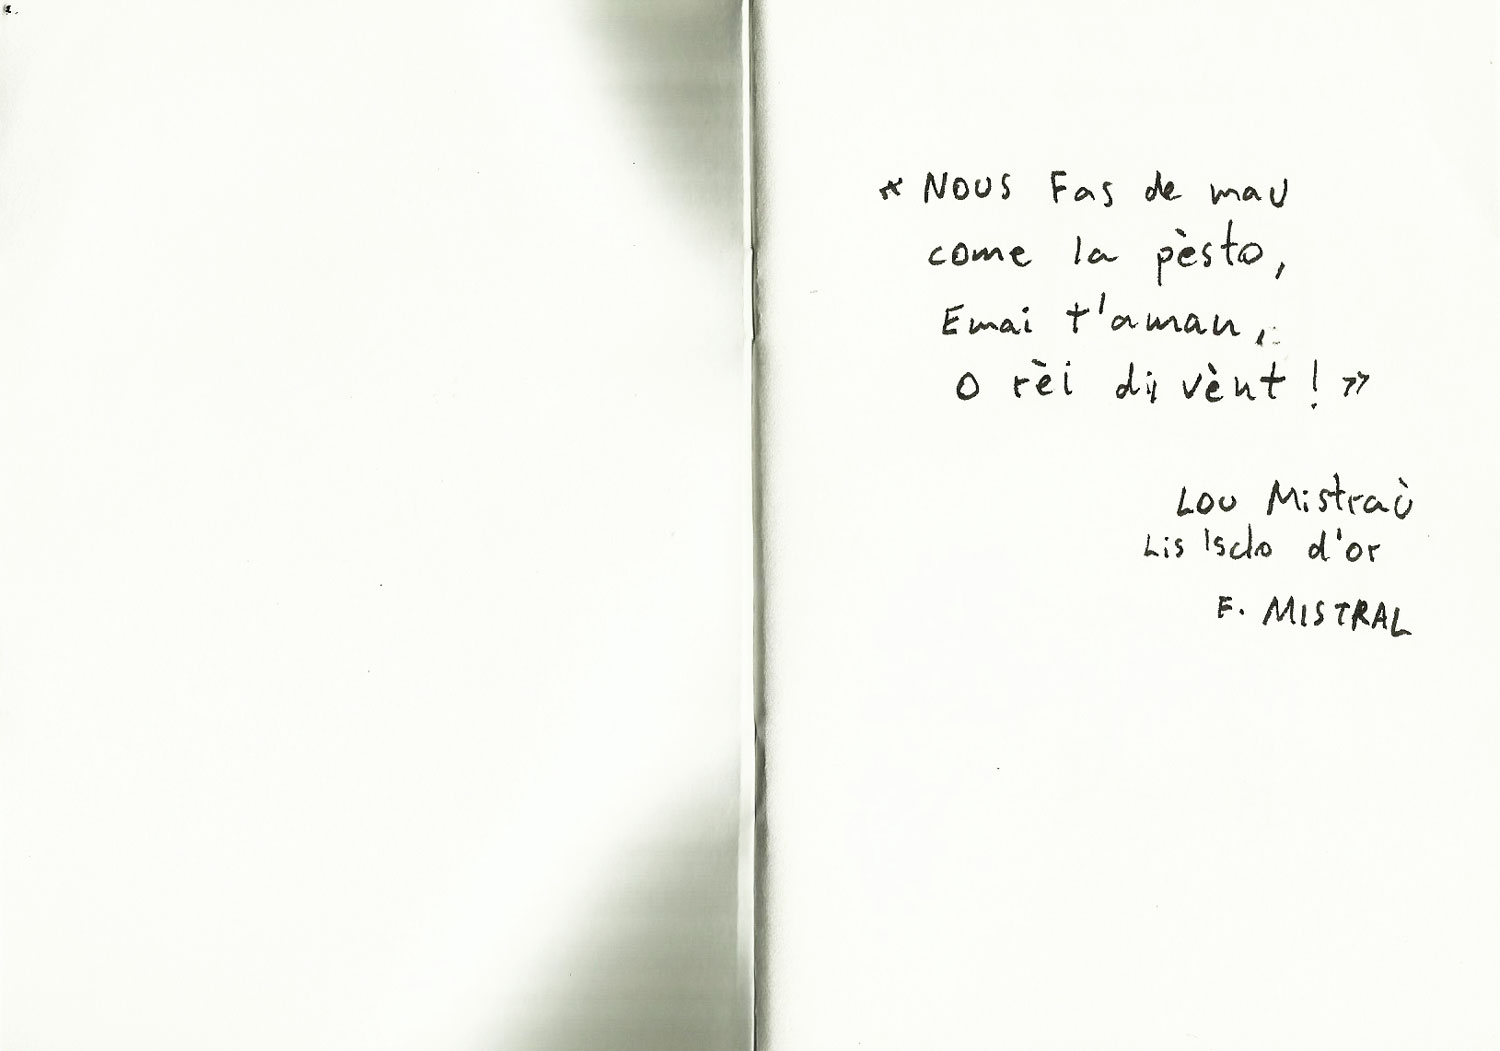 « Nous Fas de mau
come la pèsto,
Emai t'aman,
O rèi dij vènt ! »
Lou Mistraù
Lis Isclo d'or
F. MISTRAL